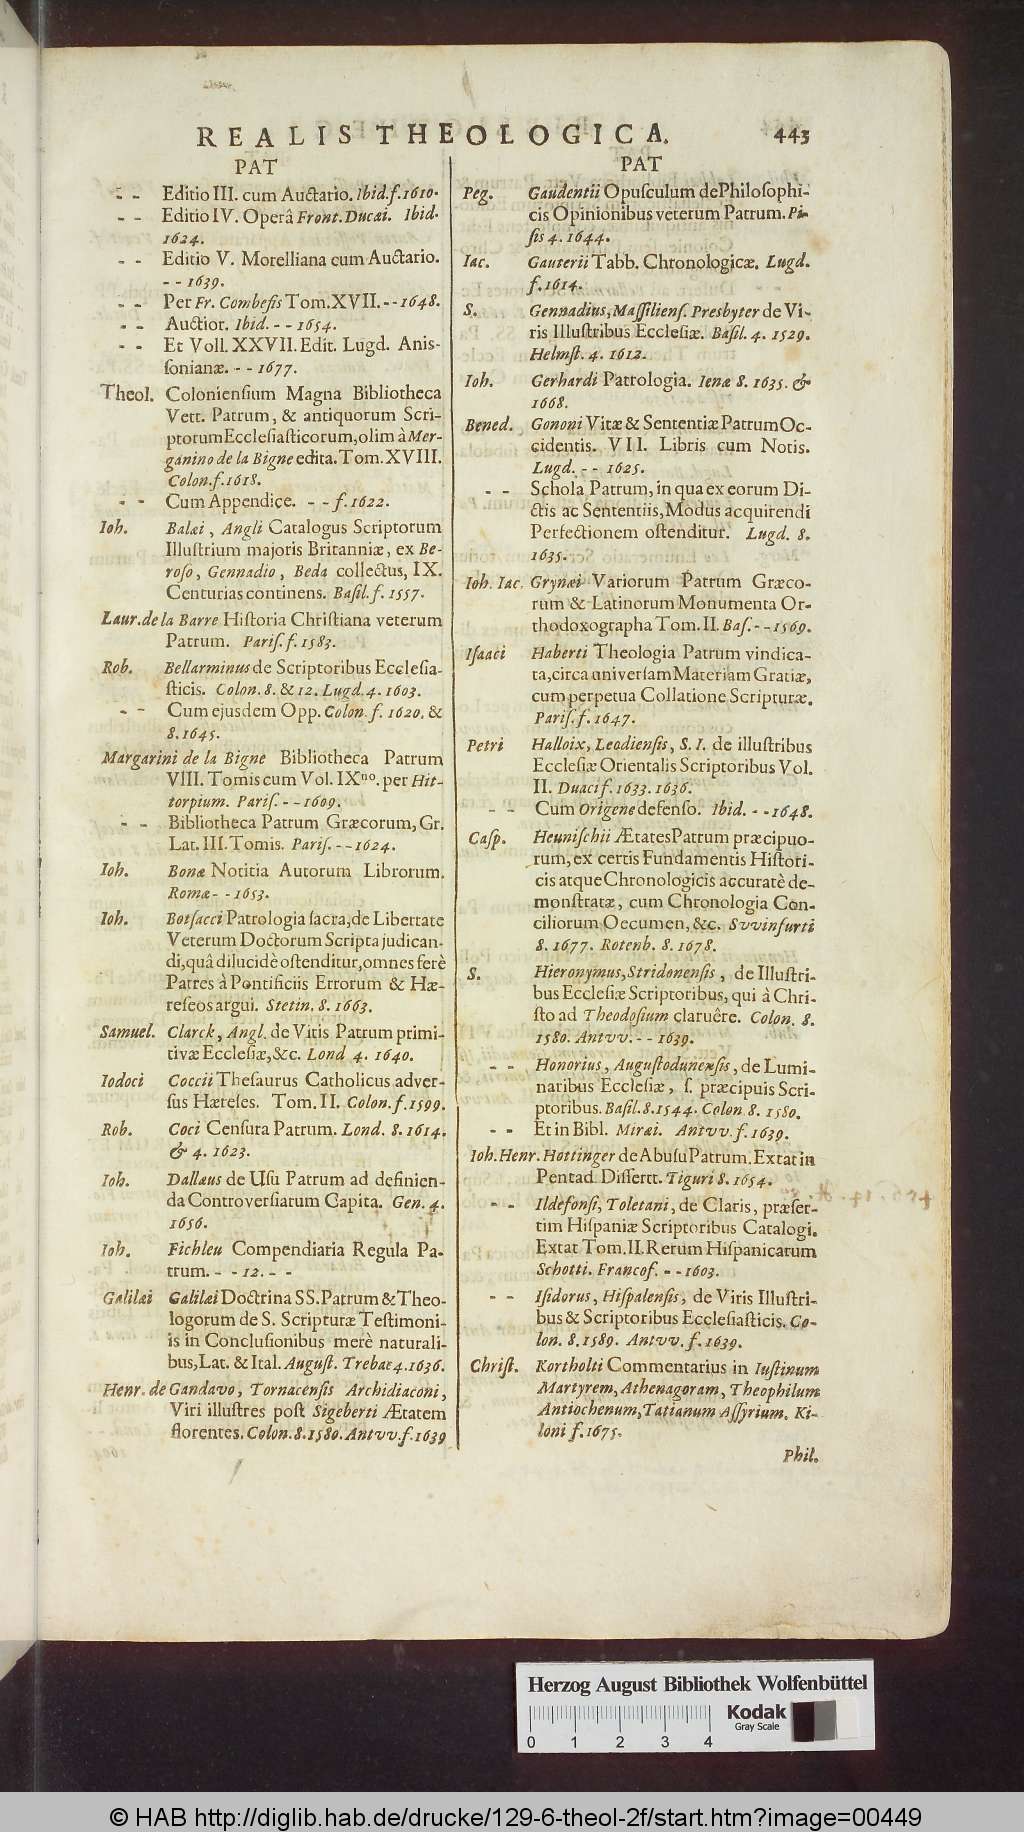 REALIS THEOLOGICA. 443
PAT
- - Editio III. cum Auctario. Ibid. f. 1610.
- - Editio IV. Operâ Front. Ducæi. Ibid.
1624.
- - Editio V. Morelliana cum Auctario.
- - 1639.
- - Per Fr. Combefis Tom. XVII. - - 1648.
- - Auctior. Ibid. - - 1654.
- - Et Voll. XXVII. Edit. Lugd. Anis-
ſonianæ. - - 1677.
Theol. Colonienſium Magna Bibliotheca
Vett. Patrum, & antiquorum Scri-
ptorum Eccleſiaſticorum, olim à Mer-
ganino de la Bigne edita. Tom. XVIII.
Colon. f. 1618.
- - Cum Appendice. - - f. 1622.
Ioh. Balæi, Angli Catalogus Scriptorum
Illuſtrium majoris Britanniæ, ex Be-
roſo, Gennadio, Beda collectus, IX.
Centurias continens. Baſil. f. 1557.
Laur. de la Barre Hiſtoria Chriſtiana veterum
Patrum. Pariſ. f. 1583.
Rob. Bellarminus de Scriptoribus Eccleſia-
ſticis. Colon. 8. & 12. Lugd. 4. 1603.
- - Cum ejusdem Opp. Colon. f. 1620. &
8. 1645.
Margarini de la Bigne Bibliotheca Patrum
VIII. Tomis cum Vol. IXno. per Hit-
torpium. Pariſ. - - 1609.
- - Bibliotheca Patrum Græcorum, Gr.
Lat. III. Tomis. Pariſ. - - 1624.
Ioh. Bonæ Notitia Autorum Librorum.
Romæ - - 1653.
Ioh. Botſacci Patrologia ſacra, de Libertate
Veterum Doctorum Scripta judican-
di, quâ dilucidè oſtenditur, omnes ferè
Patres à Pontificiis Errorum & Hæ-
reſeos argui. Stetin. 8. 1663.
Samuel. Clarck, Angl. de Vitis Patrum primi-
tivæ Eccleſiæ, &c. Lond 4. 1640.
Iodoci Coccii Theſaurus Catholicus adver-
ſus Hæreſes. Tom. II. Colon. f. 1599.
Rob. Coci Cenſura Patrum. Lond. 8. 1614.
& 4. 1623.
Ioh. Dallæus de Uſu Patrum ad definien-
da Controverſiarum Capita. Gen. 4.
1656.
Ioh. Fichleu Compendiaria Regula Pa-
trum. - - 12. - -
Galilæi Galilæi Doctrina SS. Patrum & Theo-
logorum de S. Scripturæ Teſtimoni-
is in Concluſionibus merè naturali-
bus, Lat. & Ital. Auguſt. Trebat 4. 1636.
Henr. de Gandavo, Tornacenſis Archidiaconi,
Viri illuſtres poſt Sigeberti Ætatem
florentes. Colon. 8. 1580. Antvv. f. 1639
PAT
Peg. Gaudentii Opuſculum de Philoſophi-
cis Opinionibus veterum Patrum. Pi-
ſis 4. 1644.
Iac. Gauterii Tabb. Chronologicæ. Lugd.
f. 1614.
S. Gennadius, Maſſilienſ. Presbyter de Vi-
ris Illuſtribus Eccleſiæ. Baſil. 4. 1529.
Helmſt. 4. 1612.
Ioh. Gerhardi Patrologia. Ienæ 8. 1635. &
1668.
Bened. Gononi Vitæ & Sententiæ Patrum Oc-
cidentis. VII. Libris cum Notis.
Lugd. - - 1625.
- - Schola Patrum, in qua ex eorum Di-
ctis ac Sententiis, Modus acquirendi
Perfectionem oſtenditur. Lugd. 8.
1635.
Ioh. Iac. Grynæi Variorum Patrum Græco-
rum & Latinorum Monumenta Or-
thodoxographa Tom. II. Baſ. - - 1569.
Iſaaci Haberti Theologia Patrum vindica-
ta, circa univerſam Materiam Gratiæ,
cum perpetua Collatione Scripturæ.
Pariſ. f. 1647.
Petri Halloix, Leodienſis, S. I. de illuſtribus
Eccleſiæ Orientalis Scriptoribus Vol.
II. Duaci f. 1633. 1636.
- - Cum Origene defenſo. Ibid. - - 1648.
Caſp. Heuniſchii Ætates Patrum præcipuo-
rum, ex certis Fundamentis Hiſtori-
cis atque Chronologicis accuratè de-
monſtratæ, cum Chronologia Con-
ciliorum Oecumen, &c. Svvinfurti
8. 1677. Rotenb. 8. 1678.
S. Hieronymus, Stridonenſis, de Illuſtri-
bus Eccleſiæ Scriptoribus, qui à Chri-
ſto ad Theodoſium claruêre. Colon. 8.
1580. Antvv. - - 1639.
- - Honorius, Auguſtodunenſis, de Lumi-
naribus Eccleſiæ, ſ. præcipuis Scri-
ptoribus. Baſil. 8. 1544. Colon 8. 1580.
- - Et in Bibl. Miræi. Antvv. f. 1639.
Ioh. Henr. Hottinger de Abuſu Patrum. Extat in
Pentad. Diſſertt. Tiguri 8. 1654.
- - Ildefonſi, Toletani, de Claris, præſer-
tim Hiſpaniæ Scriptoribus Catalogi.
Extat Tom. II. Rerum Hiſpanicarum
Schotti. Francof. - - 1603.
- - Iſidorus, Hiſpalenſis, de Viris Illuſtri-
bus & Scriptoribus Eccleſiaſticis. Co-
lon. 8. 1589. Antvv. f. 1639.
Chriſt. Kortholti Commentarius in Iuſtinum
Martyrem, Athenagoram, Theophilum
Antiochenum, Tatianum Aſſyrium. Ki-
loni f. 1675.
Phil.
Herzog August Bibliothek Wolfenbüttel
Kodak
Gray Scale
0 1 2 3 4
© HAB http://diglib.hab.de/drucke/129-6-theol-2f/start.htm?image=00449